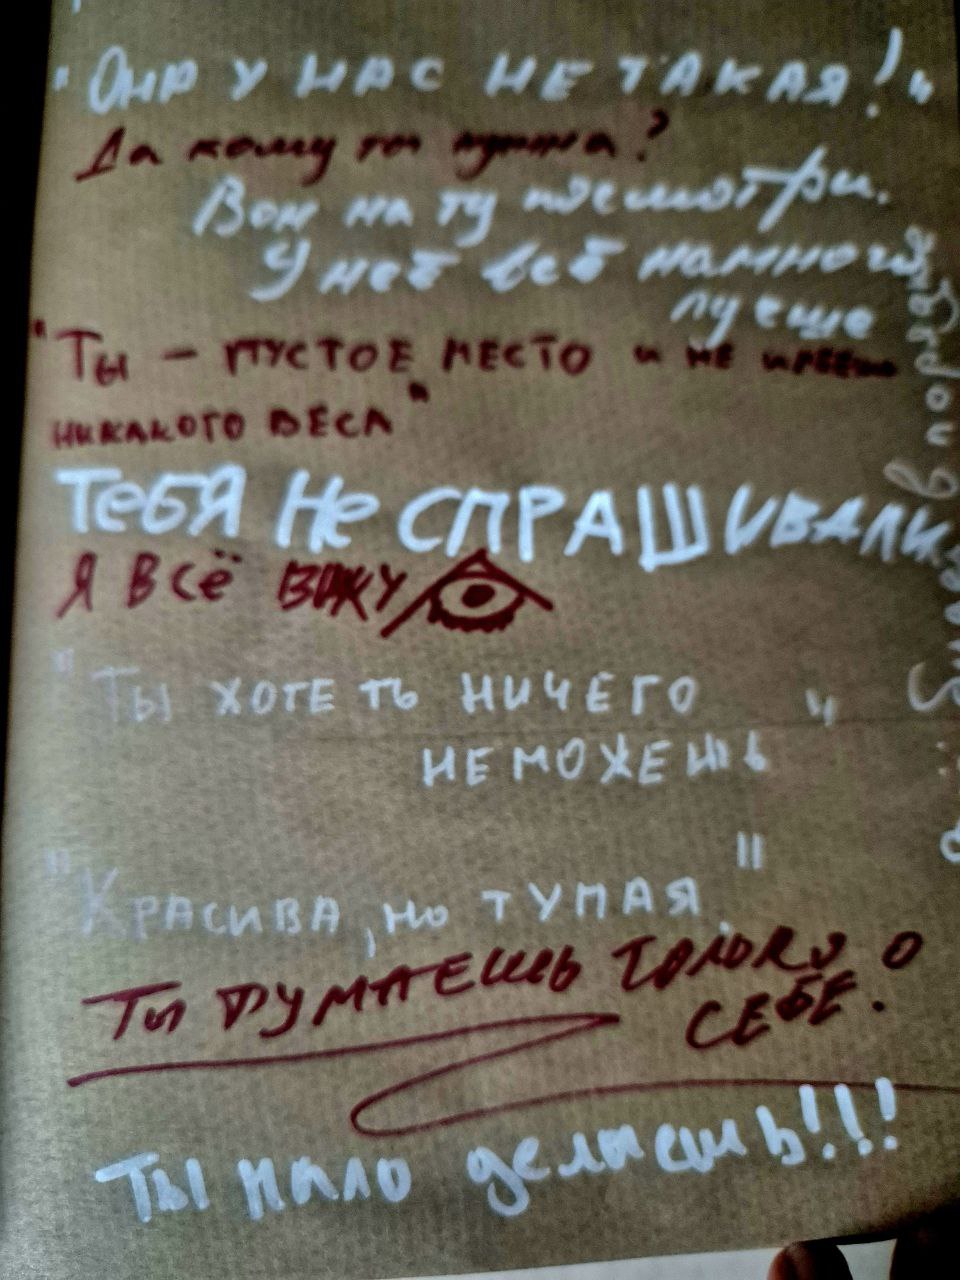 "ОНА У НАС НЕ ТАКАЯ!"
Да кому ты нужна?
Вон на ту посмотри.
У неё всё намного
лучше
"ТЫ – ПУСТОЕ МЕСТО и НЕ ИМЕЕШЬ
НИКАКОГО ВЕСА"
ТЕБЯ НЕ СПРАШИВАЛИ
Я ВСЁ ВИЖУ
"ТЫ ХОТЕТЬ НИЧЕГО
НЕ МОЖЕШЬ"
"КРАСИВА, но ТУПАЯ."
ТЫ ДУМАЕШЬ ТОЛЬКО О
СЕБЕ.
ТЫ мало делаешь!!!